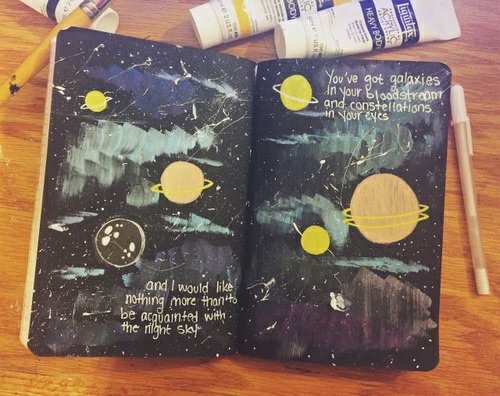 You've got galaxies
in your bloodstream
and constellations
in your eyes
and I would like
nothing more than to
be acquainted with
the night sky
Liquitex
HEAVY BODY